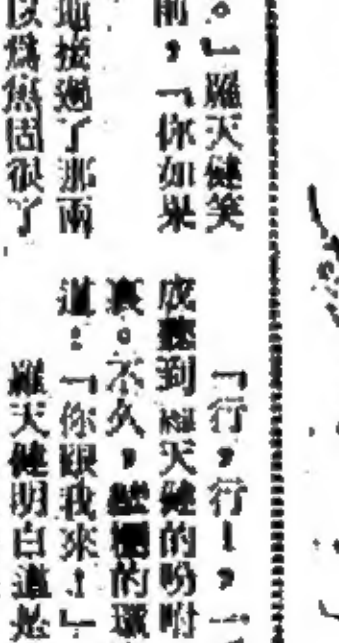 。」羅天健笑
前,「你如果
地接過了那兩
以為無固很了
「行,行!,一
成聽到 天健的吩咐
裏。不久, 的
道:「你跟我來!」
羅天健明白這是